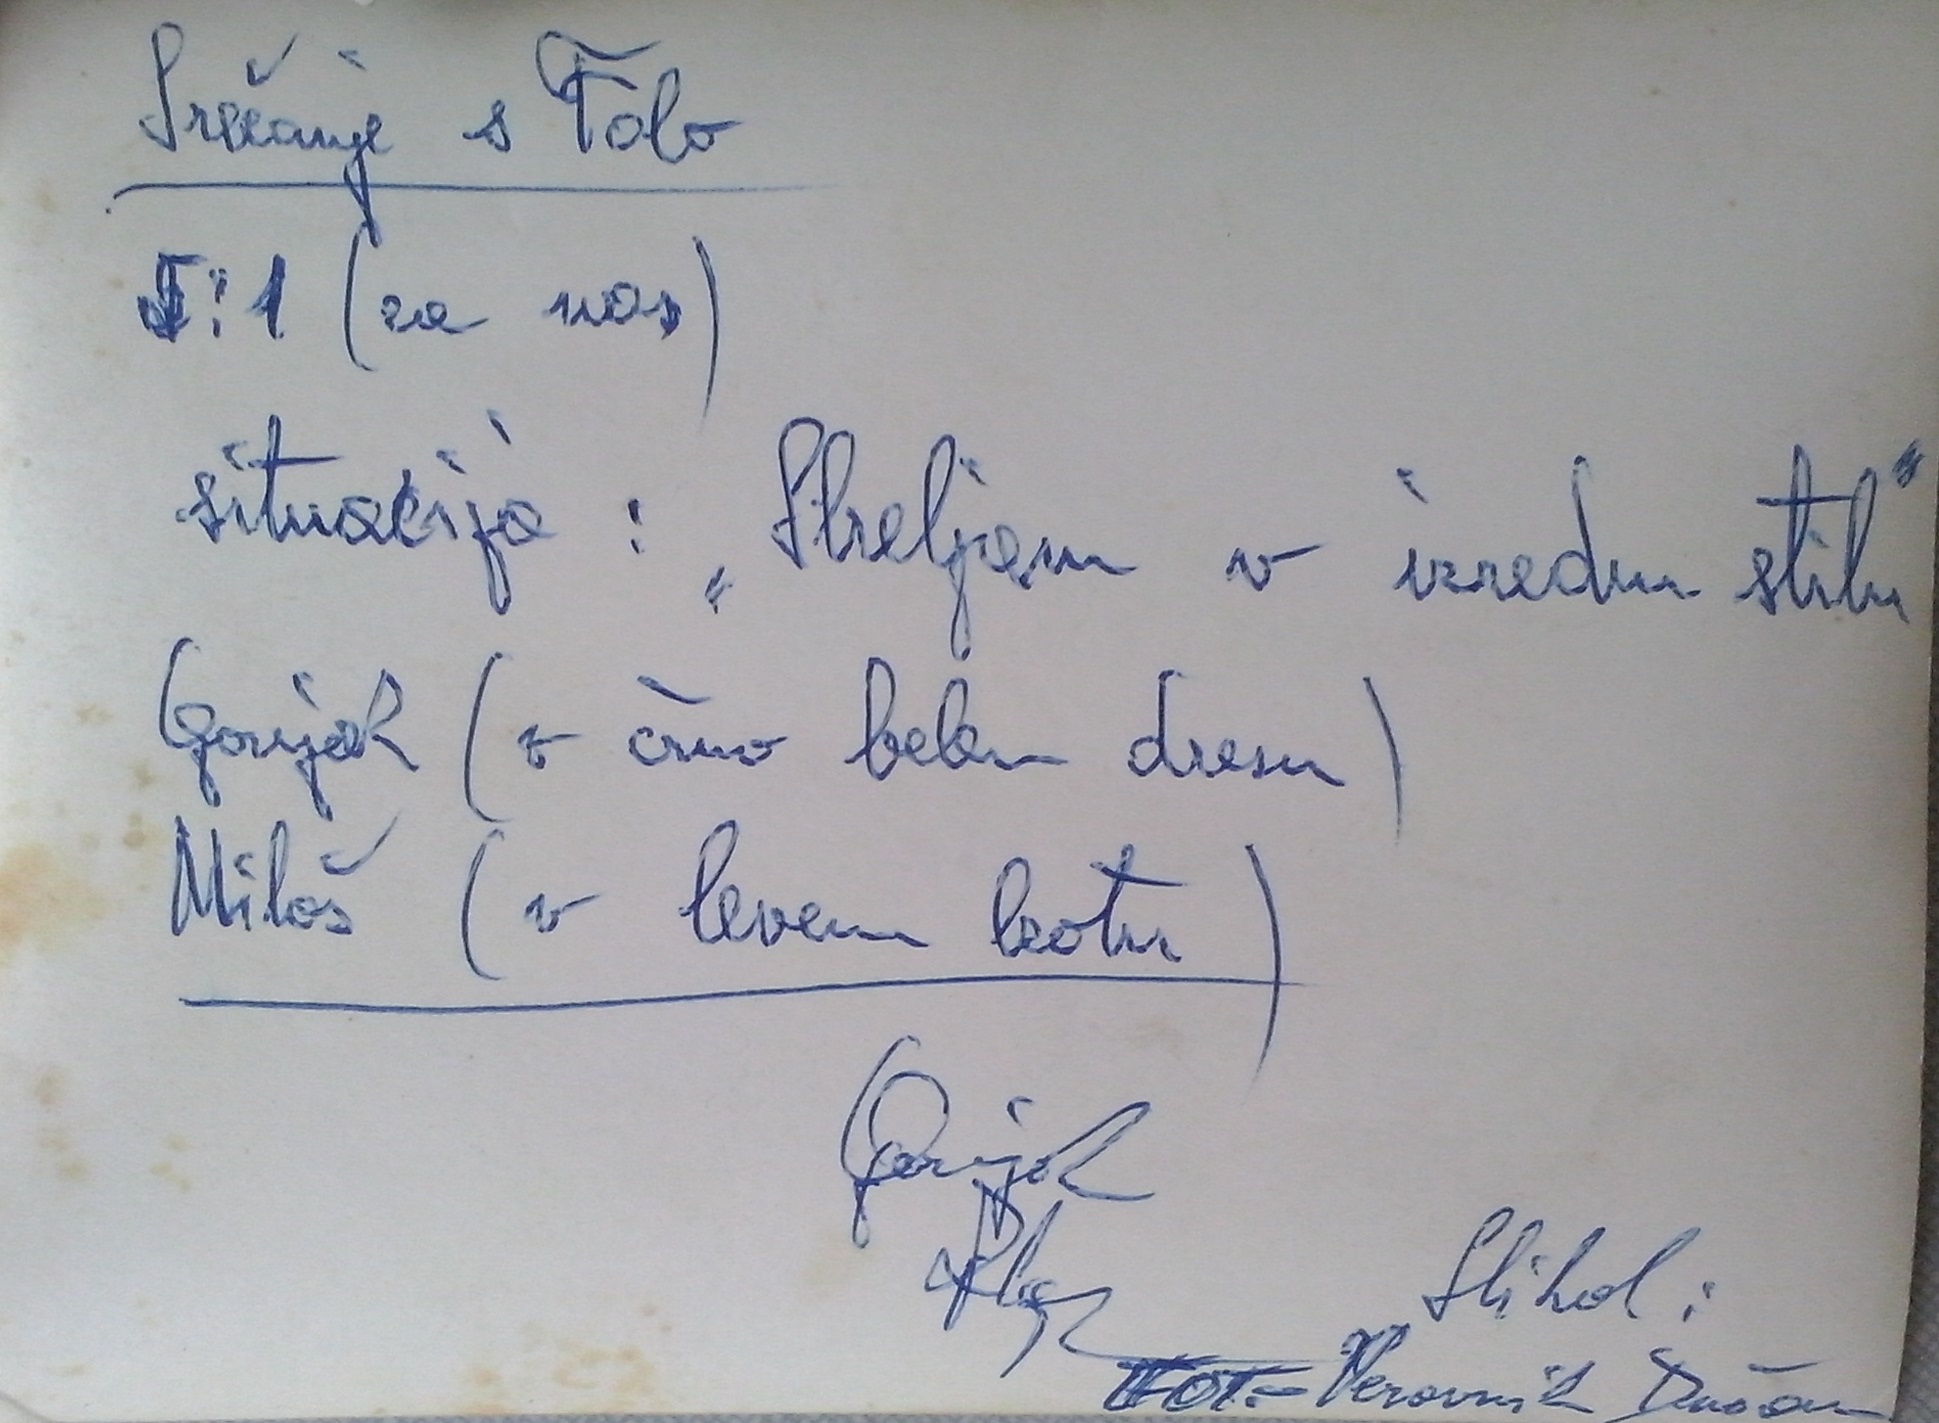 Srečanje s Tolo
5:1 (za nas)
situacija : „Streljam v izredm stilu"
Gorijak (v črno belem dresu)
Miloš (v levem kotu)
Gorijak
Slikal :
FOT.- Verovnik Dušan